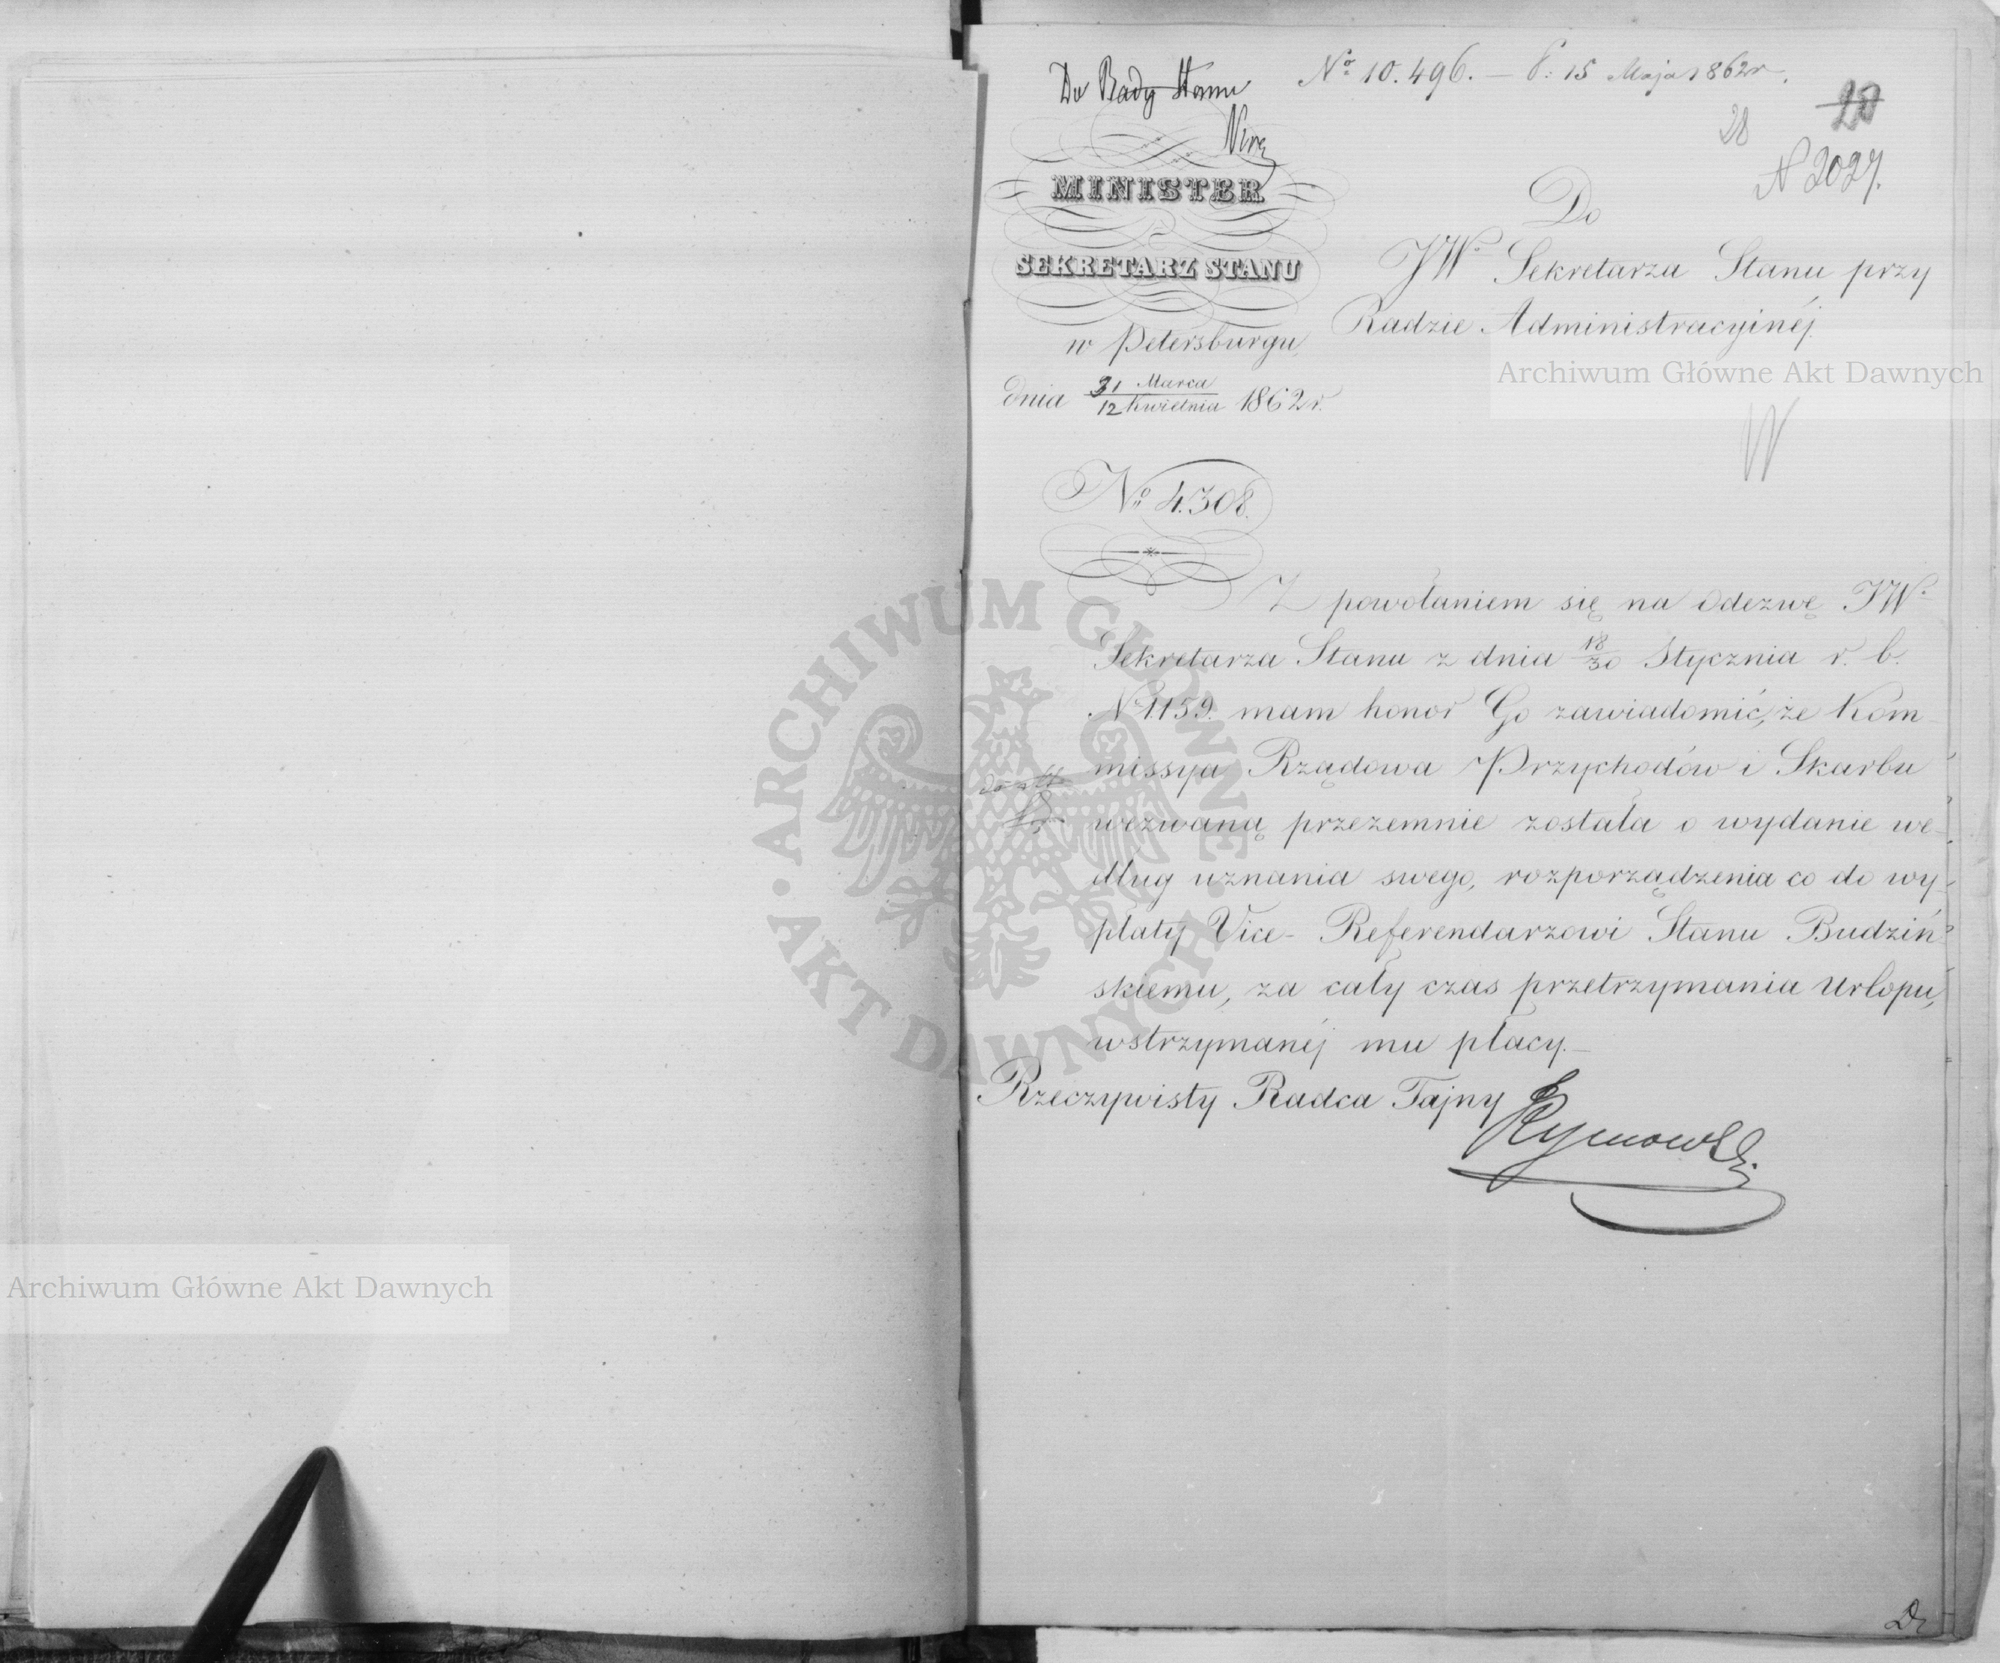 Do Rady Stanu
No 10.496. — d: 15 Maja 1862 r.
20
28
N 2027.
MINISTER
SEKRETARZ STANU
w Petersburgu,
dnia 31 Marca / 12 Kwietnia 1862 r.
No 4.308.
Do
JW. Sekretarza Stanu przy
Radzie Administracyjnéj.
Z powołaniem się na odezwę JW.
Sekretarza Stanu z dnia 18/30 Stycznia r. b.
No 1159. mam honor Go zawiadomić, że Kom-
missya Rządowa Przychodów i Skarbu
wezwaną przezemnie została o wydanie we-
dług uznania swego, rozporządzenia co do wy-
płaty Vice-Referendarzowi Stanu Budziń-
skiemu, za cały czas przetrzymania urlopu,
wstrzymanéj mu płacy.—
Rzeczywisty Radca Tajny
Tymowski
Archiwum Główne Akt Dawnych
Archiwum Główne Akt Dawnych
ARCHIWUM GŁÓWNE AKT DAWNYCH